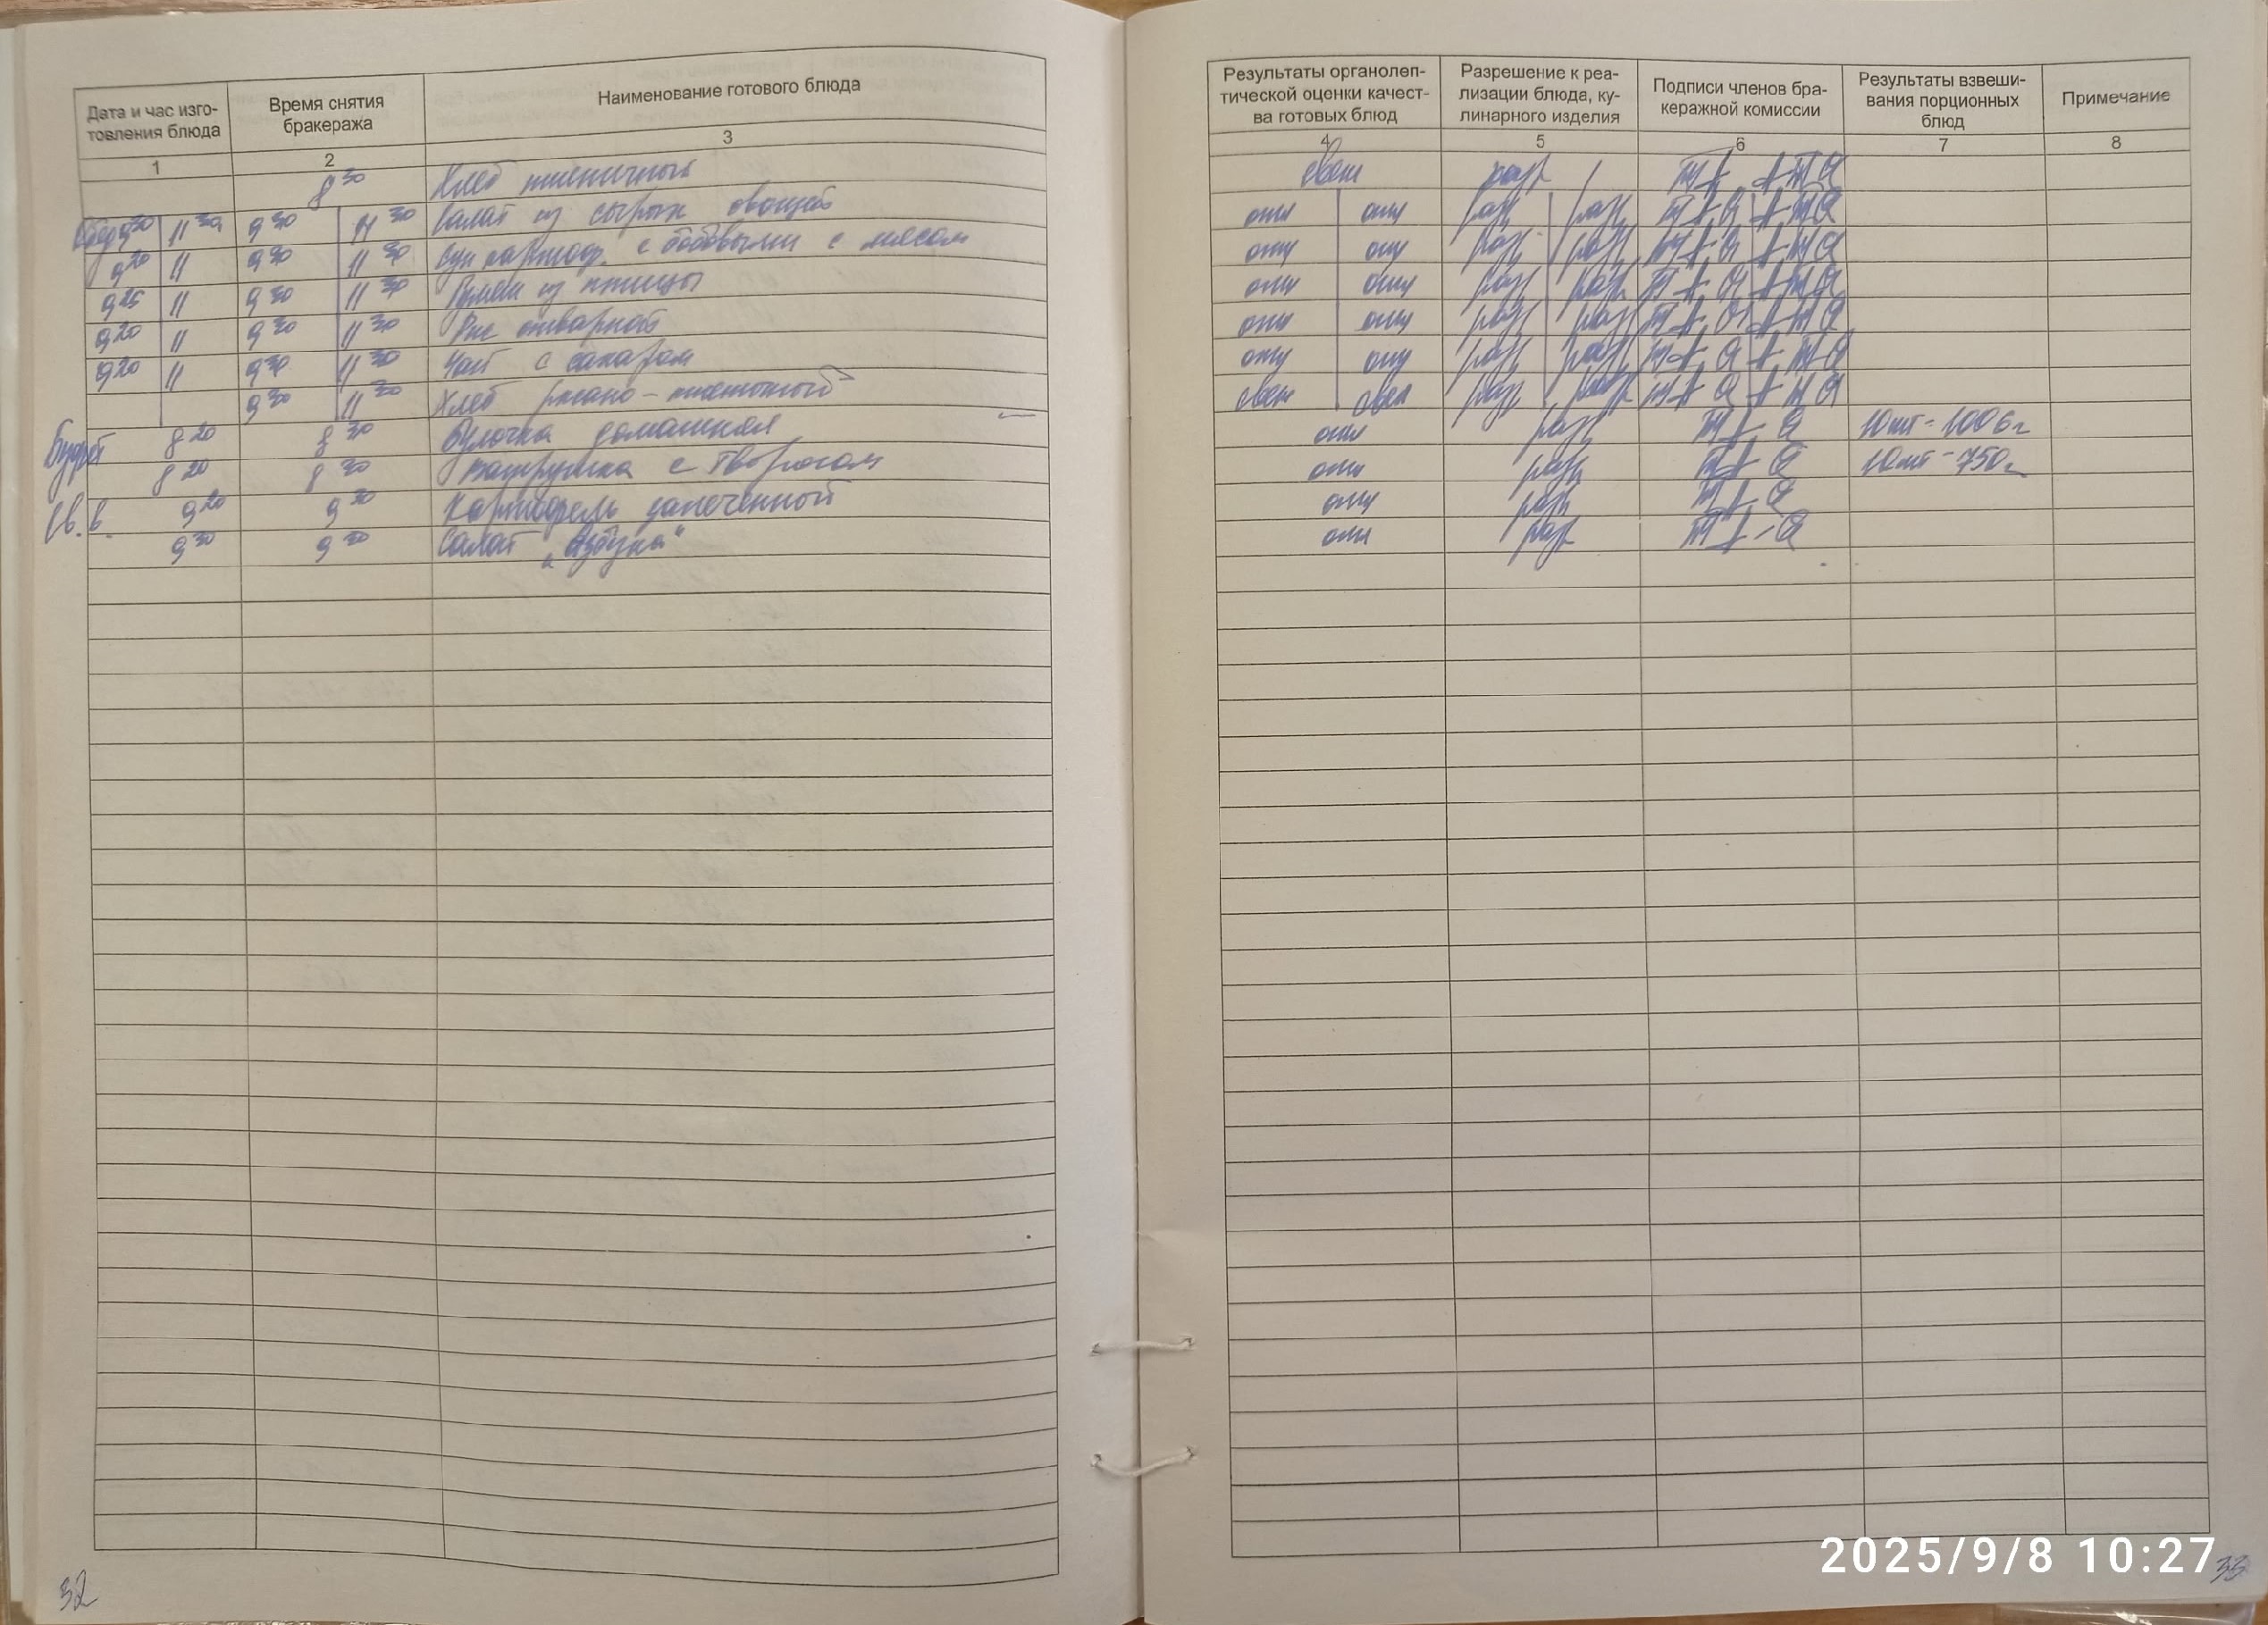 Дата и час изго-
товления блюда
Время снятия
бракеража
Наименование готового блюда
1
2
3
8 30 Хлеб пшеничный
9 30 11 30 Салат из сырых овощей
9 20 11 9 30 11 30 Суп картоф. с бобовыми с мясом
9 25 11 9 30 11 30 из птицы
9 20 11 9 30 11 30 Рис отварной
9 20 11 9 30 11 30 Чай с сахаром
9 30 11 30 Хлеб ржано-пшеничный
Буфет 8 20 8 30 Булочка домашняя
8 20 8 30 Ватрушка с творогом
Св. в. 9 20 9 30 Картофель запеченный
9 30 9 30 Салат „Азбука"
32
Результаты органолеп-
тической оценки качест-
ва готовых блюд
Разрешение к реа-
лизации блюда, ку-
линарного изделия
Подписи членов бра-
керажной комиссии
Результаты взвеши-
вания порционных
блюд
Примечание
4
5
6
7
8
свеж разр
отл отл разр разр
отл отл разр разр
отл отл разр разр
отл отл разр разр
отл отл разр разр
свеж свеж разр разр
отл разр 10шт - 1006г
отл разр 10шт - 750г
отл разр
отл разр
2025/9/8 10:27
33